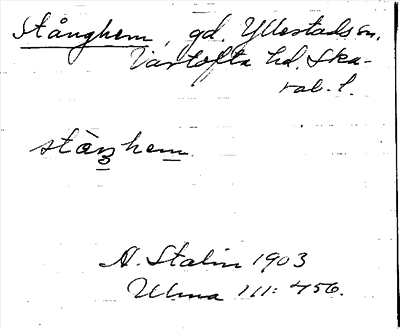 Stånghem, gd, Yllestads sn,
Vartofta hd, Ska-
rab. l.
stàŋhem
A. Stalin 1903
Ulma 111: 456.